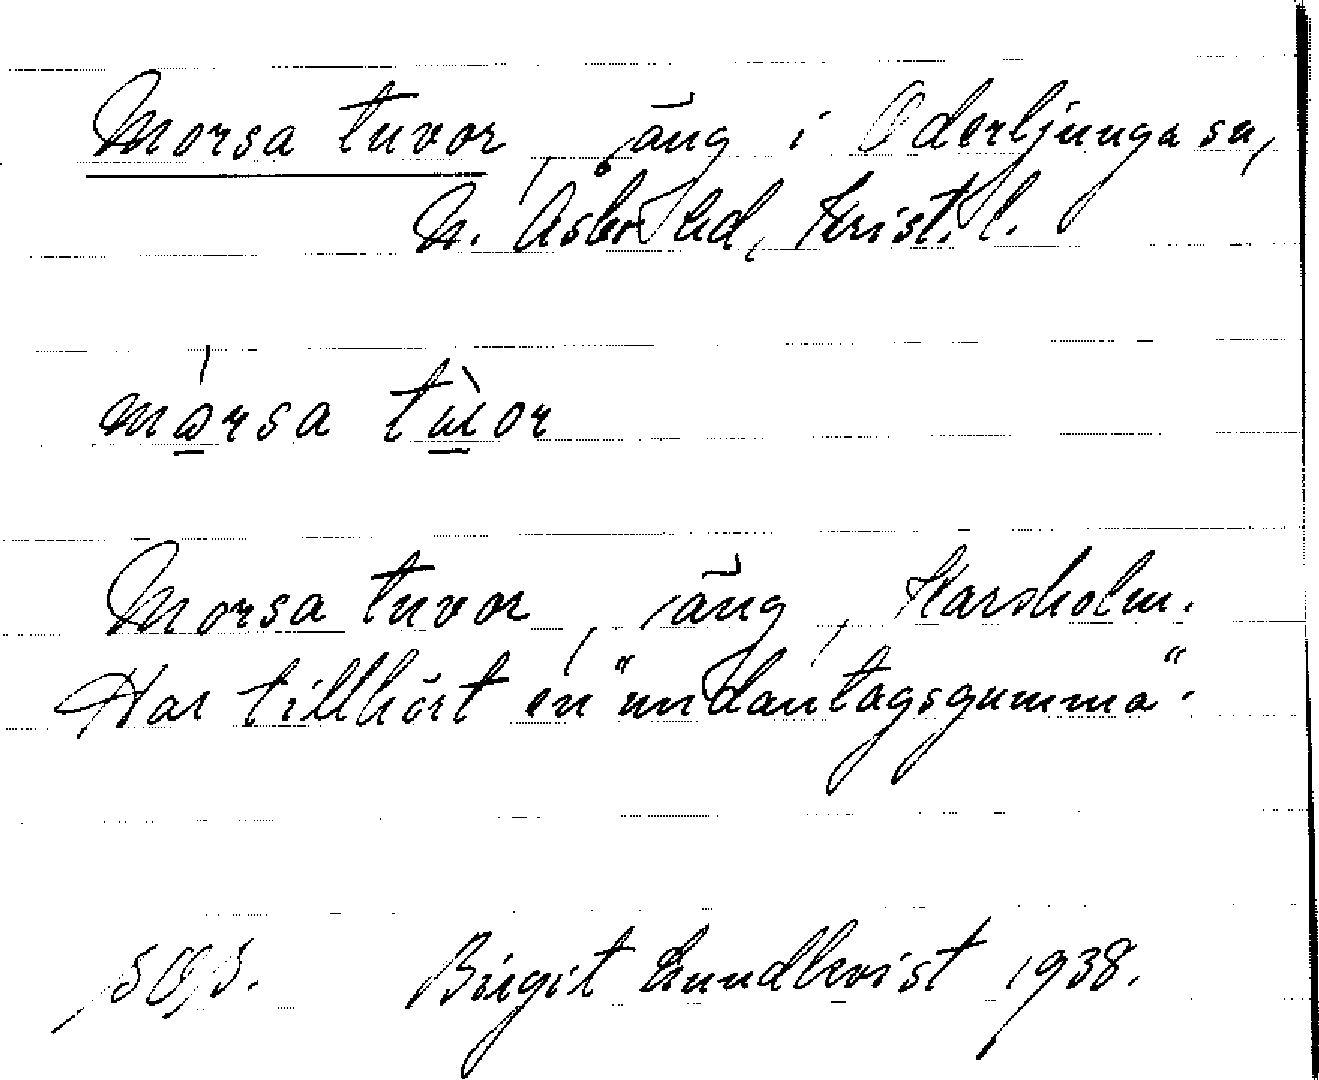 Morsa tuvor, äng i Oderljunga sn,
N. Åsbo hd, Krist. l.
mɷrsa tùor
Morsa tuvor, äng, Karsholm.
Har tillhört en "undantagsgumma".
Birgit Lundkvist 1938.